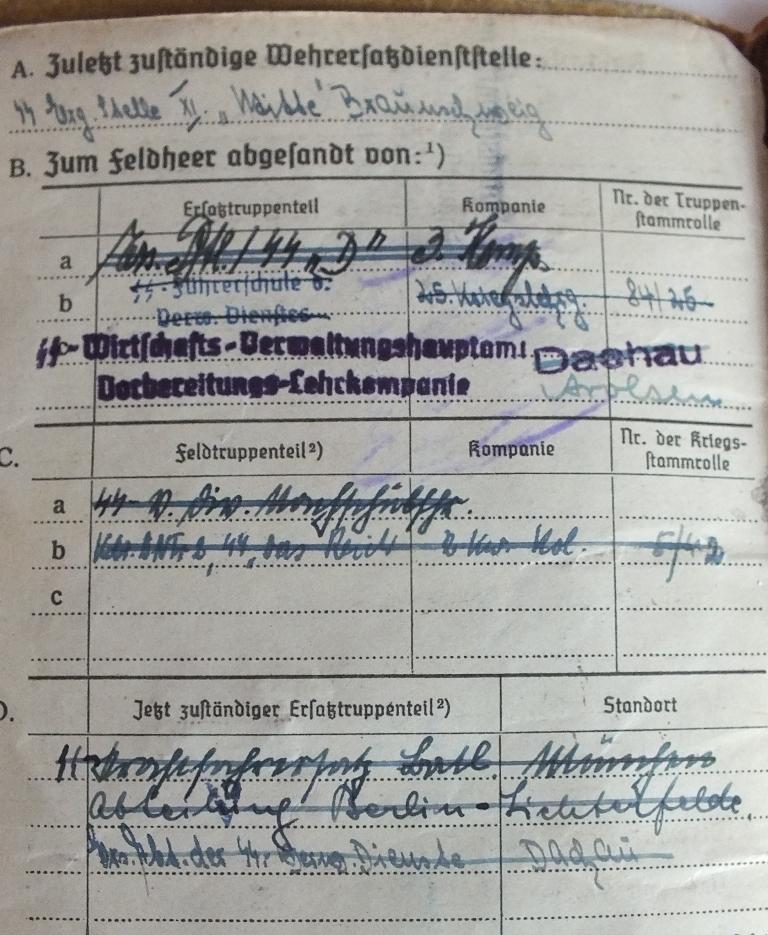 A. Zuletzt zuständige Wehrersatzdienststelle:
ᛋᛋ Erg. Stelle XI. „Mitte“ Braunschweig
B. Zum Feldheer abgesandt von:¹)
Ersatztruppenteil Kompanie Nr. der Truppen-
stammrolle
a ᛋᛋ „D“ 3. Komp.
b ᛋᛋ-Führerschule d. 25. 84/25
Verw. Dienstes
c ᛋᛋ-Wirtschafts-Verwaltungshauptamt Dachau
Vorbereitungs-Lehrkompanie Arolsen
C. Feldtruppenteil²) Kompanie Nr. der Kriegs-
stammrolle
a ᛋᛋ-V. Div.
b ᛋᛋ „Das Reich“ Kol. 5/42
c
D. Jetzt zuständiger Ersatztruppenteil²) Standort
ᛋᛋ Kraftfahrersatz Batl. München
Abteilung Berlin-Lichterfelde.
Ers. Abt. der ᛋᛋ-Verw. Dienste Dachau